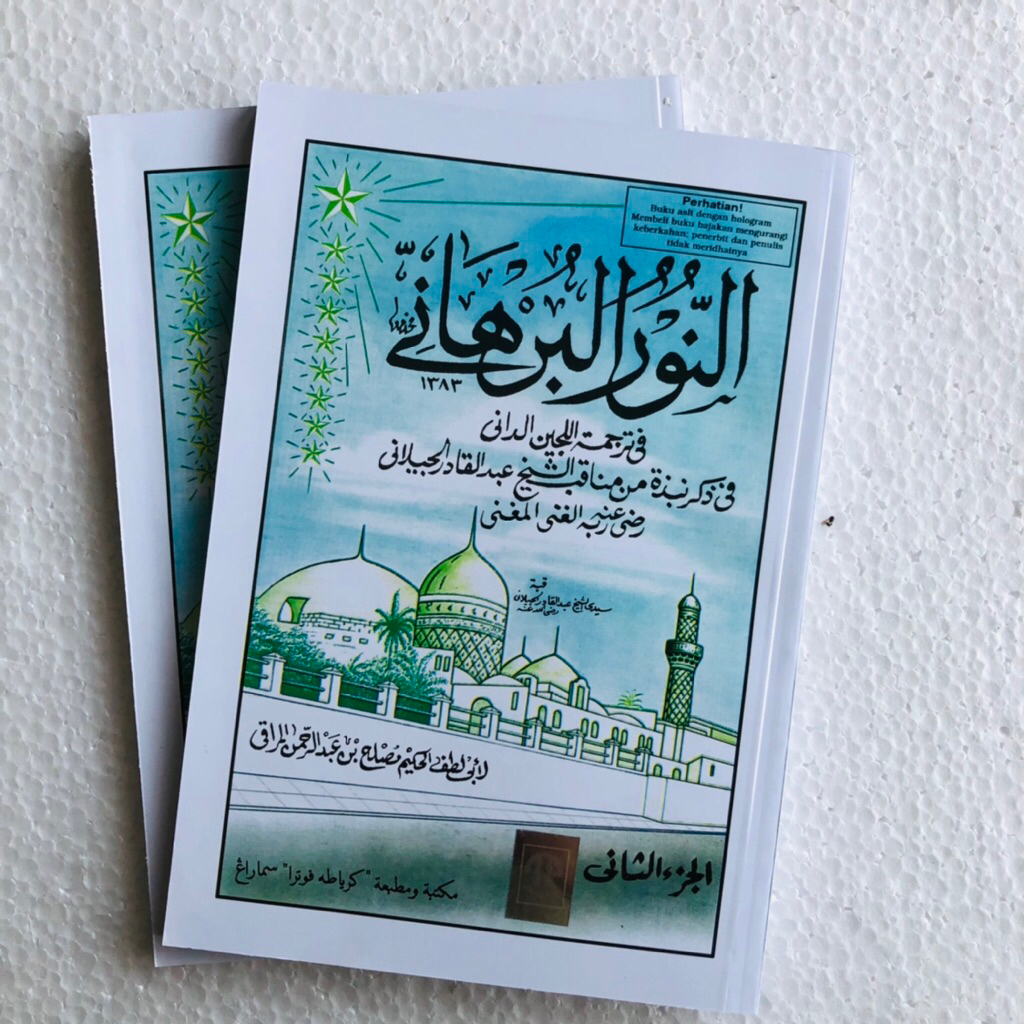 Perhatian!
Buku asli dengan hologram
Membeli buku bajakan mengurangi
keberkahan; penerbit dan penulis
tidak meridhainya
النُّوْرُ الْبُرْهَانِيّ
١٣٨٣
فى ترجمة اللجين الدانى
فى ذكر نبذة من مناقب الشيخ عبد القادر الجيلانى
رضى عنه ربه الغنى المغنى
قبة
سيدى الشيخ عبد القادر الجيلانى
رضى الله عنه
لأبى لطف الحكيم مصلح بن عبد الرحمن المراقى
الجزء الثانى
مكتبة ومطبعة "كرياطه فوترا" سماراڠ